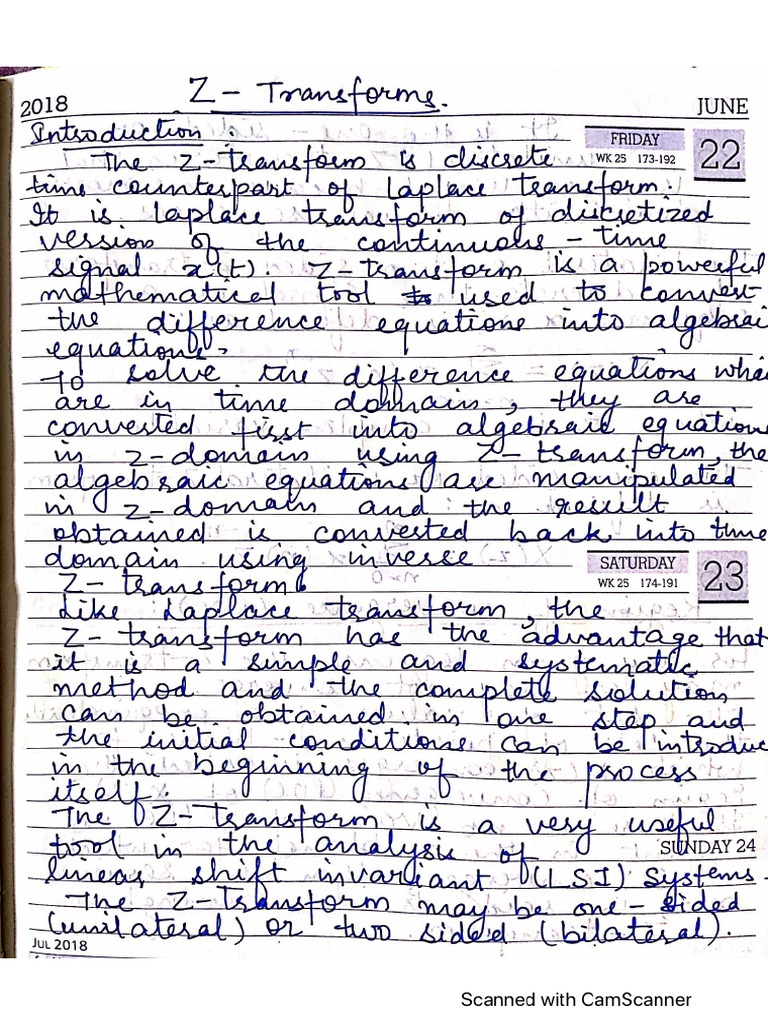 Z - Transforms.
2018 JUNE
Introduction :
FRIDAY
WK 25 173-192
22
The Z-transform is discrete
time counterpart of Laplace transform.
It is Laplace transform of discretized
version of the continuous - time
signal x(t). Z-transform is a powerful
mathematical tool used to convert
the difference equations into algebrai
equations.
To solve the difference equations whi
are in time domain, they are
converted first into algebraic equations
in z-domain using Z-transform, the
algebraic equations are manipulated
in z-domain and the result
obtained is converted back into time
domain using inverse
SATURDAY
WK 25 174-191
23
Z- transform.
Like Laplace transform, the
Z- transform has the advantage that
it is a simple and systematic
method and the complete solution
can be obtained in one step and
the initial conditions can be introduc
in the beginning of the process
itself.
The Z-transform is a very useful
tool in the analysis of
SUNDAY 24
linear shift invariant (LSI) systems.
The Z-Transform may be one-sided
(unilateral) or two sided (bilateral).
JUL 2018
Scanned with CamScanner